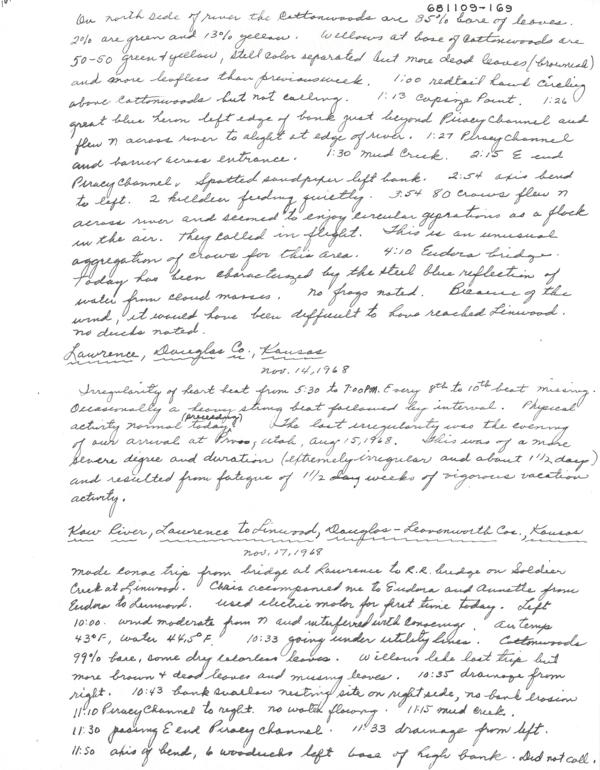 681109-169
On north side of river the Cottonwoods are 85% bare of leaves.
2% are green and 13% yellow. Willows at base of Cottonwoods are
50-50 green & yellow, still color separated but more dead leaves (brownish)
and more leafless than previous week. 1:00 redtail hawk circling
above cottonwoods but not calling. 1:13 Capsize Point. 1:26
great blue heron left edge of bank just beyond Piracy Channel and
flew N across river to alight at edge of river. 1:27 Piracy Channel
and barrier across entrance. 1:30 Mud Creek. 2:15 E end
Piracy Channel. Spotted sandpiper left bank. 2:54 axis bend
to left. 2 killdeer feeding quietly. 3:54 80 crows flew N
across river and seemed to enjoy circular gyrations as a flock
in the air. They called in flight. This is an unusual
aggregation of crows for this area. 4:10 Eudora bridge.
Today has been characterized by the steel blue reflection of
water from cloud masses. No frogs noted. Because of the
wind, it would have been difficult to have reached Linwood.
No ducks noted.
Lawrence, Douglas Co., Kansas
Nov. 14, 1968
Irregularity of heart beat from 5:30 to 7:00 PM. Every 8th to 10th beat missing.
Occasionally a heavy strong beat followed by interval. Physical
activity normal today (preceeding). The last irregularity was the evening
of our arrival at Provo, Utah, Aug 15, 1968. This was of a more
severe degree and duration (extremely irregular and about 1 1/2 days)
and resulted from fatigue of 1 1/2 day weeks of vigorous vacation
activity.
Kaw River, Lawrence to Linwood, Douglas-Leavenworth Cos., Kansas
Nov. 17, 1968
Made canoe trip from bridge at Lawrence to R.R. bridge on Soldier
Creek at Linwood. Chris accompanied me to Eudora and Annette from
Eudora to Linwood. Used electric motor for first time today. Left
10:00. Wind moderate from N and interferred with canoeing. Air temp
43°F, water 44.5°F. 10:33 going under utility lines. Cottonwoods
99% bare, some dry colorless leaves. Willows like last trip but
more brown & dead leaves and missing leaves. 10:35 drainage from
right. 10:43 bank swallow nesting site on right side, no bank erosion
11:10 Piracy Channel to right. no water flowing. 11:15 mud creek.
11:30 passing E end Piracy Channel. 11:33 drainage from left.
11:50 axis of bend, 6 woodducks left base of high bank. Did not call.